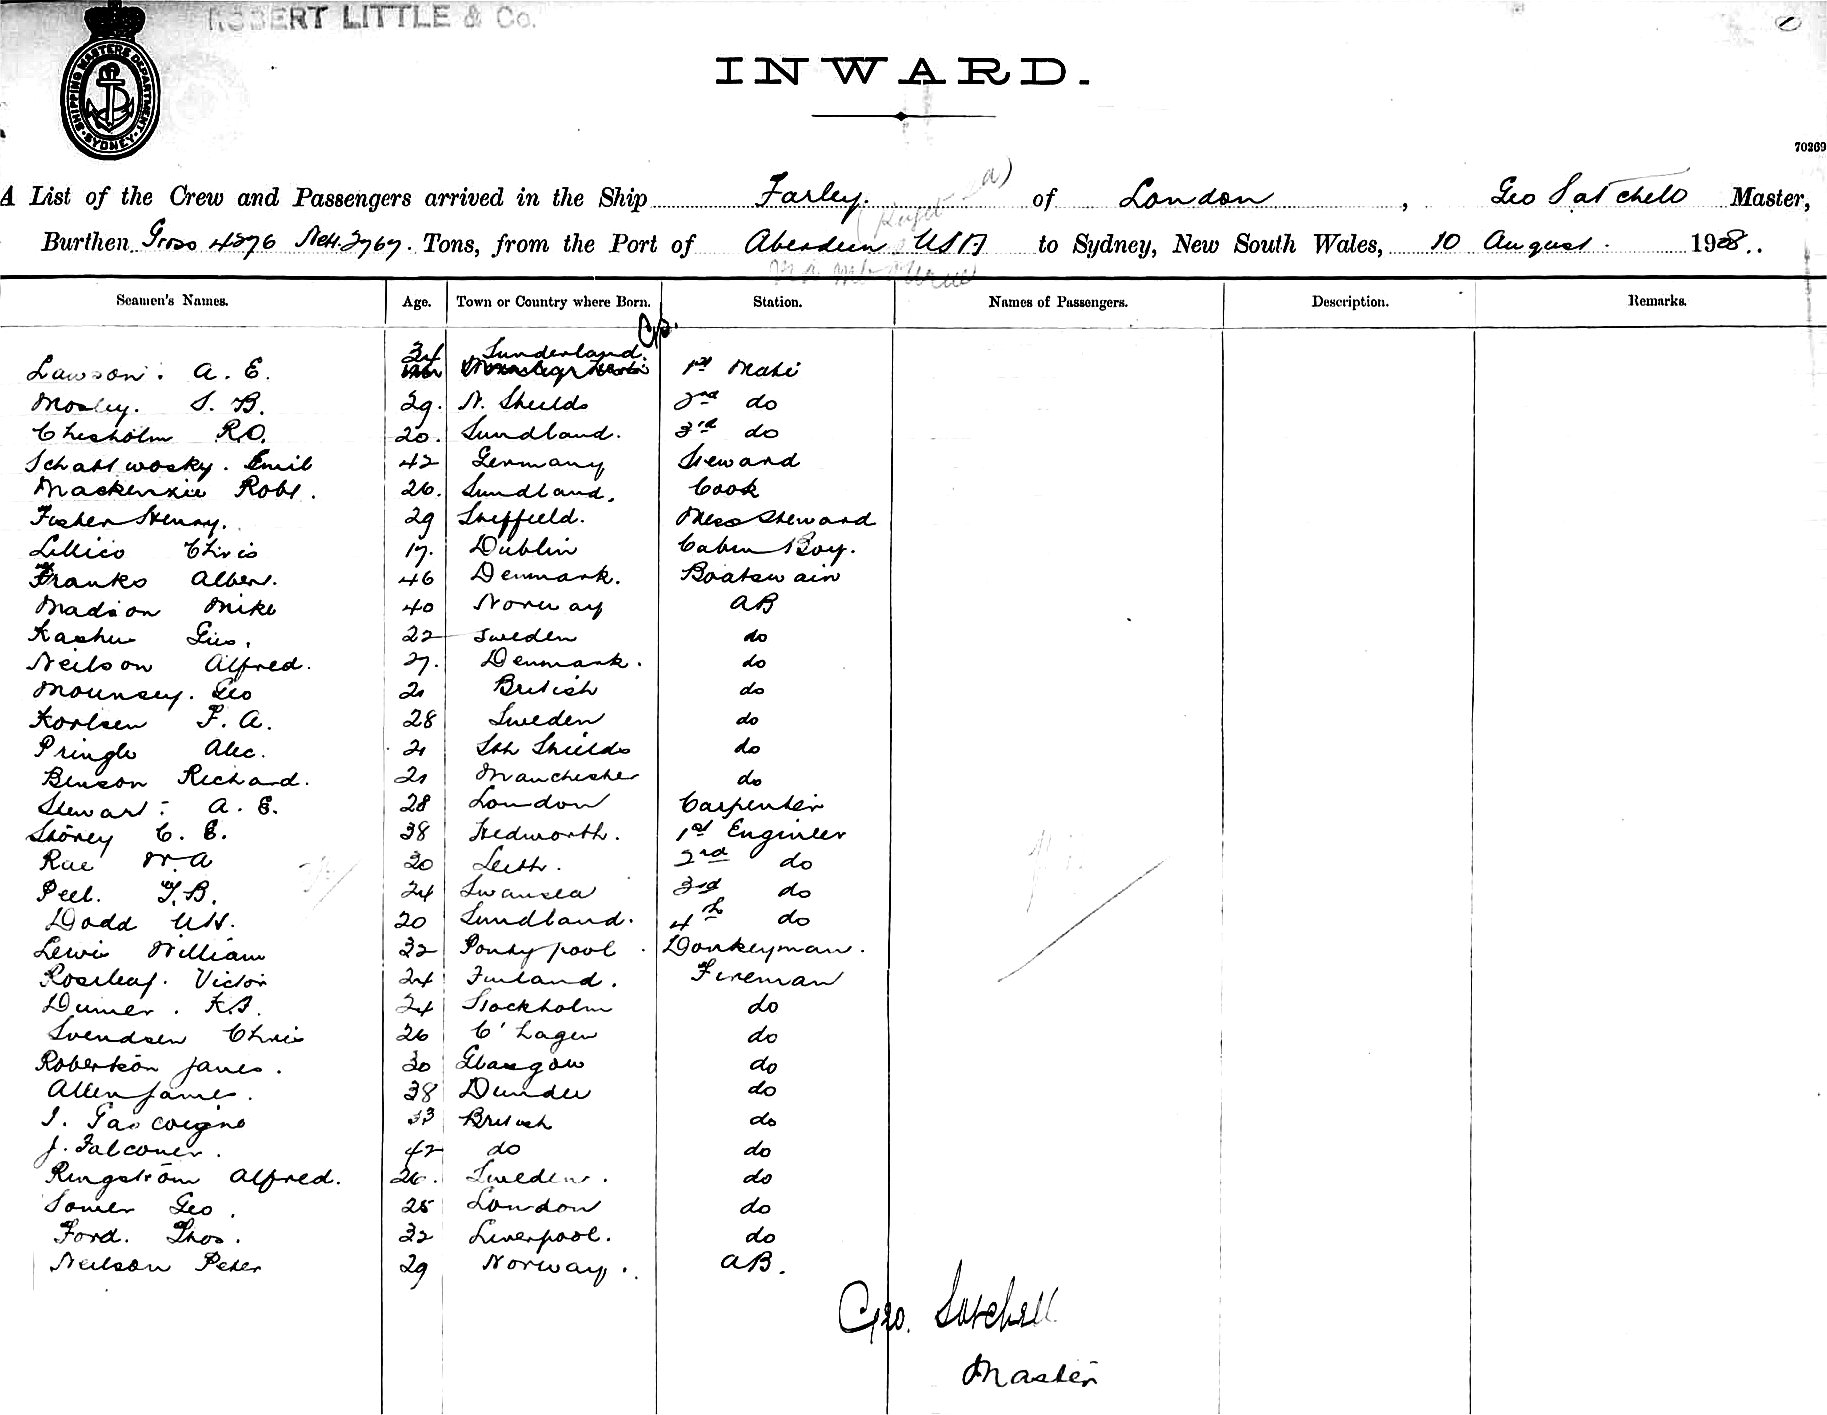 ROBERT LITTLE & Co.
SHIPPING MASTERS DEPARTMENT. SYDNEY.
INWARD.
70269
A List of the Crew and Passengers arrived in the Ship Farley. of London, Geo Satchell Master,
Burthen Gross 4276 Nett. 2767. Tons, from the Port of Aberdeen USA to Sydney, New South Wales, 10 August. 1908..
Seamen's Names. Age. Town or Country where Born. Station. Names of Passengers. Description. Remarks.
Lawson. A. E. 34 Sunderland. 1st Mate
Mosley. S. B. 29. N. Shields 2nd do
Chisholm R.O. 20. Sundland. 3rd do
Emil 42 Germany Steward
Mackenzie Robt. 26. Sundland. Cook
Fisher Henry. 29 Sheffield. Mess Steward
Lillico Chris 17. Dublin Cabin Boy.
Franks Albert. 46 Denmark. Boatswain
Madson Mike 40 Norway AB
Gus. 22 Sweden do
Neilson Alfred. 27. Denmark. do
Mounsey. Geo 21 British do
Korlsen F. A. 28 Sweden do
Pringle Alec. 21 Sth Shields do
Benson Richard. 21 Manchester do
Stewart. A. E. 28 London Carpenter
Storey C. E. 38 Hedworth. 1st Engineer
Rae W A 30 Leith. 2nd do
Peel. T. B. 24 Swansea 3rd do
Dodd W.H. 20 Sundland. 4th do
Lewis William 32 Pontypool. Donkeyman.
Rosleaf. Victor 24 Finland. Fireman
Dumer. K.J. 24 Stockholm do
Svendsen Chris 26 C'hagen do
Robertson James. 30 Glasgow do
Allen James. 38 Dundee do
J. Gascoigne 33 British do
J. Falconer. 42 do do
Ringström Alfred. 26. Sweden. do
Somer Geo. 25 London do
Ford. Thos. 32 Liverpool. do
Neilson Peter 29 Norway. AB.
Geo. Satchell
Master